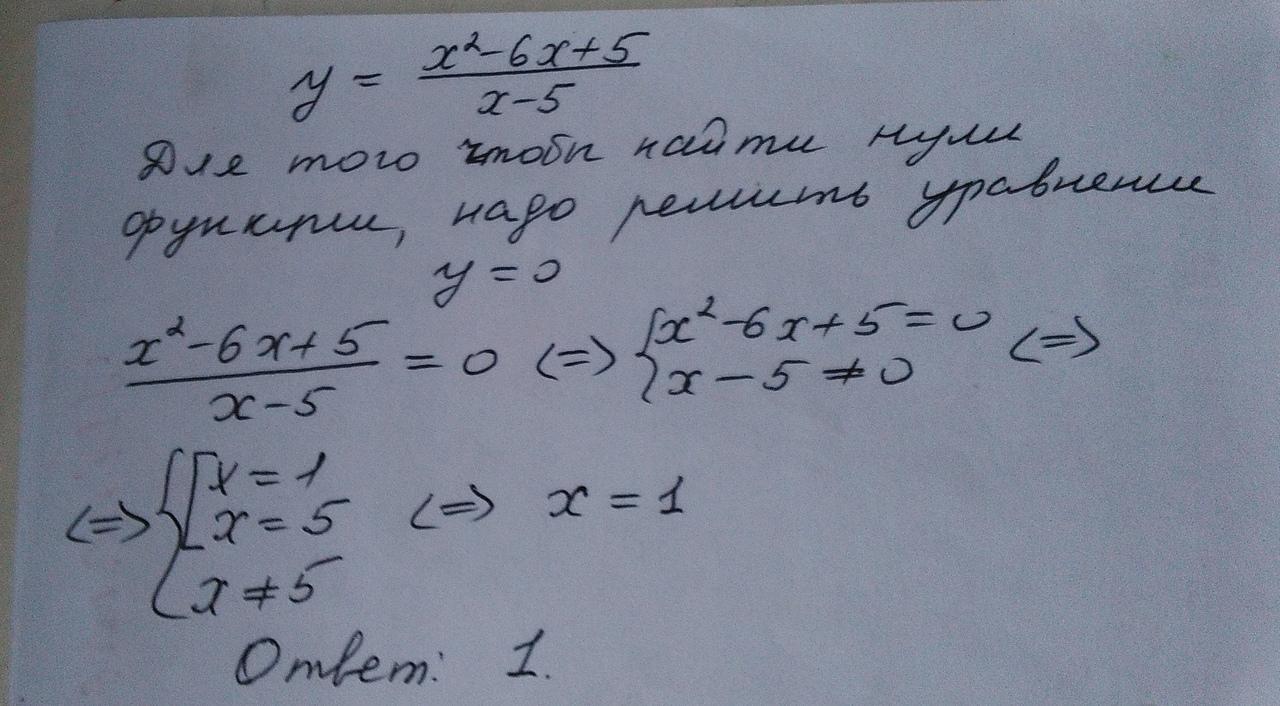 y = x²-6x+5 / x-5
Для того чтобы найти нули
функции, надо решить уравнение
y = 0
x²-6x+5 / x-5 = 0 <=> { x²-6x+5=0 x-5≠0 <=>
<=> { [ x=1 x=5 x≠5 <=> x=1
Ответ: 1.